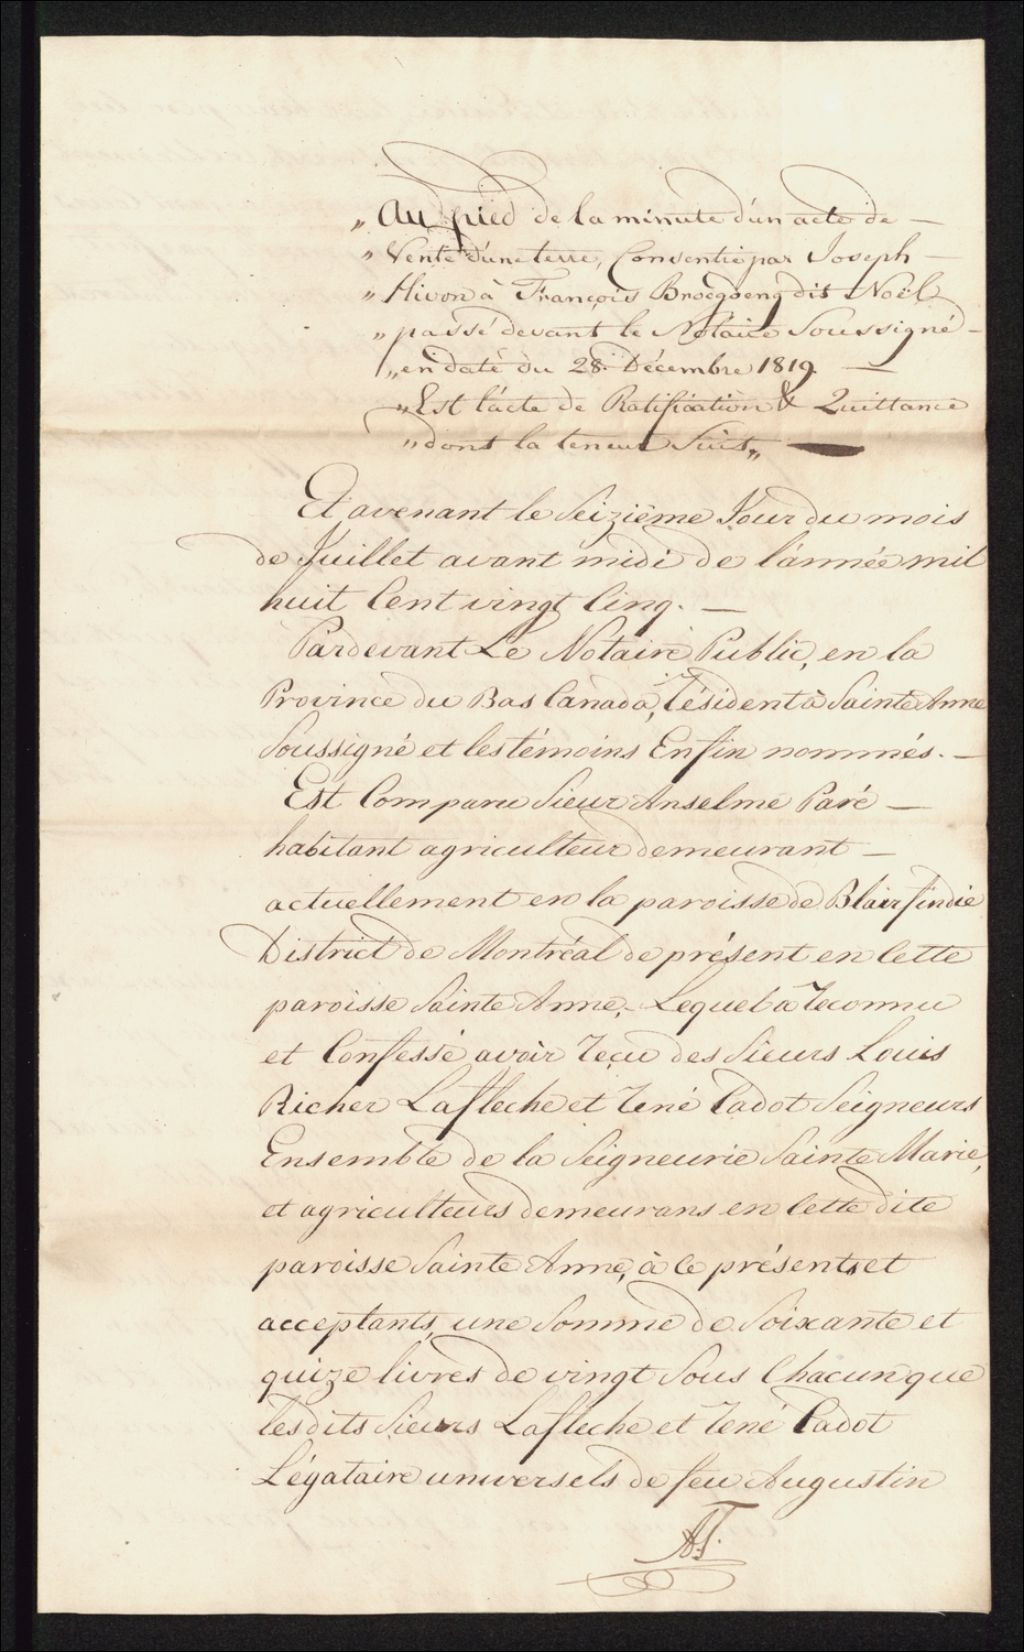 „ Au pied de la minute d'un acte de —
„ Vente d'une terre, Consentie par Joseph —
„ Hivon à François Brocqseng dit Noël
„ passé devant le Notaire Soussigné —
„ en date du 28. Décembre 1819. —
„ Est l'acte de Ratification & Quittance
„ dont la teneur Suit „ —
Et avenant le Seizième Jour du mois
de Juillet avant midi de l'année mil
huit Cent vingt Cinq. —
Pardevant Le Notaire Public, en la
Province du Bas Canada, résident à Sainte Anne
Soussigné et les témoins Enfin nommés. —
Est Comparu Sieur Anselme Paré —
habitant agriculteur demeurant —
actuellement en la paroisse de Blairfindie
District de Montréal de présent en Cette
paroisse Sainte Anne, Lequel a reconnu
et Confessé avoir reçu des Sieurs Louis
Richer Lafleche et rené Cadot Seigneurs
Ensemble de la Seigneurie Sainte Marie,
et agriculteurs demeurans en Cette dite
paroisse Sainte Anne, à ce présents et
acceptants, une Somme de Soixante et
quize livres de vingt Sous Chacun que
lesdits Sieurs Lafleche et rené Cadot
Légataire universels de feu Augustin